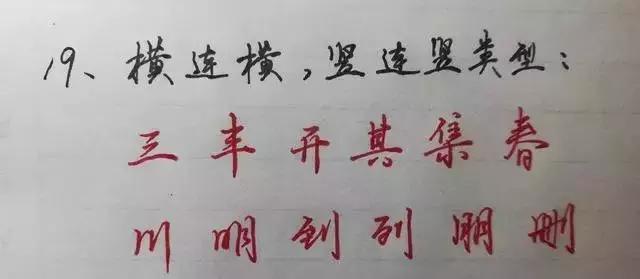 19、横连横,竖连竖类型:
三丰开其集春
川明到列朋删